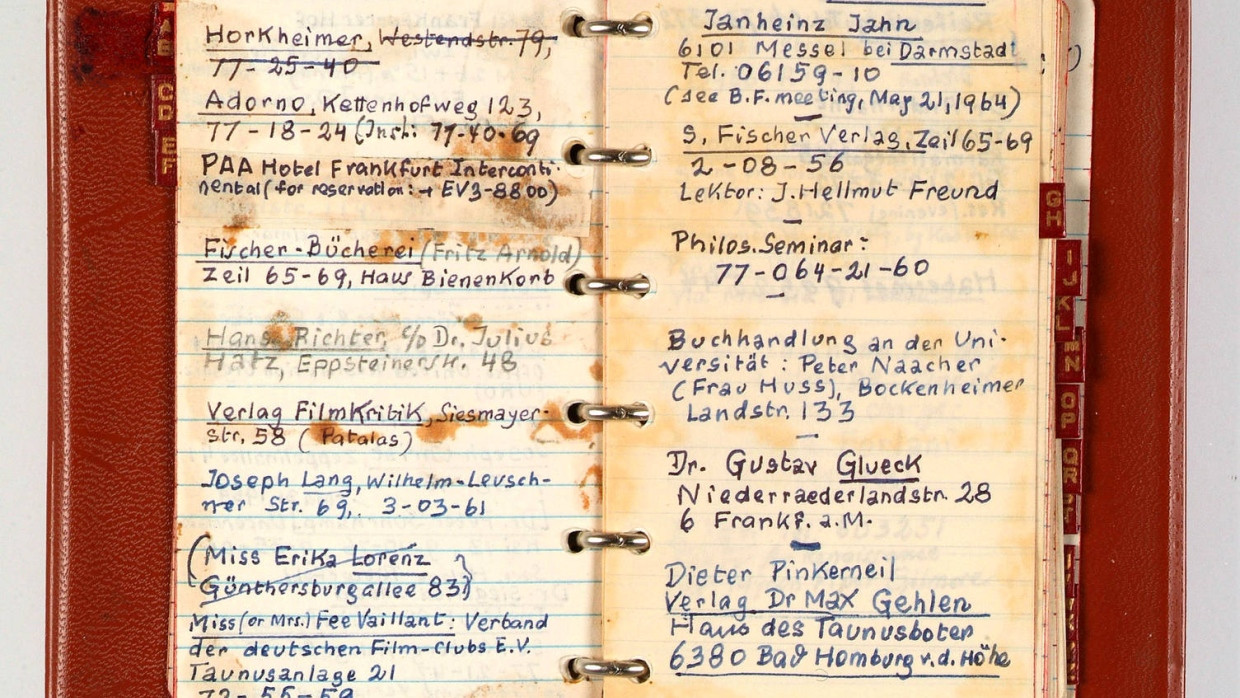 Horkheimer, Westendstr. 79,
77-25-40
Adorno, Kettenhofweg 123,
77-18-24 (Inst: 77-40-69
PAA Hotel Frankfurt Interconti-
nental (for reservation: → EV3-8800)
Fischer-Bücherei (Fritz Arnold)
Zeil 65-69, Haus Bienenkorb
Hans Richter, c/o Dr. Julius
Hatz, Eppsteinerstr. 48
Verlag Filmkritik, Siesmayer-
str. 58 (Patalas)
Joseph Lang, Wilhelm-Leusch-
ner Str. 69, 3-03-61
(Miss Erika Lorenz
Günthersburgallee 83)
Miss (or Mrs.) Fee Vaillant: Verband
der deutschen Film-Clubs E.V.
Taunusanlage 21
72-55-59
Janheinz Jahn
6101 Messel bei Darmstadt
Tel. 06159-10
(see B.F. meeting, May 21, 1964)
S. Fischer Verlag, Zeil 65-69
2-08-56
Lektor: J. Hellmut Freund
Philos. Seminar:
77-064-21-60
Buchhandlung an der Uni-
versität: Peter Naacher
(Frau Huss), Bockenheimer
Landstr. 133
Dr. Gustav Glueck
Niederraederlandstr. 28
6 Frankf. a.M.
Dieter Pinkerneil
Verlag Dr Max Gehlen
Haus des Taunusboten
6380 Bad Homburg v.d. Höhe
AB
CD
EF
GH
IJ
KL
MN
OP
QR